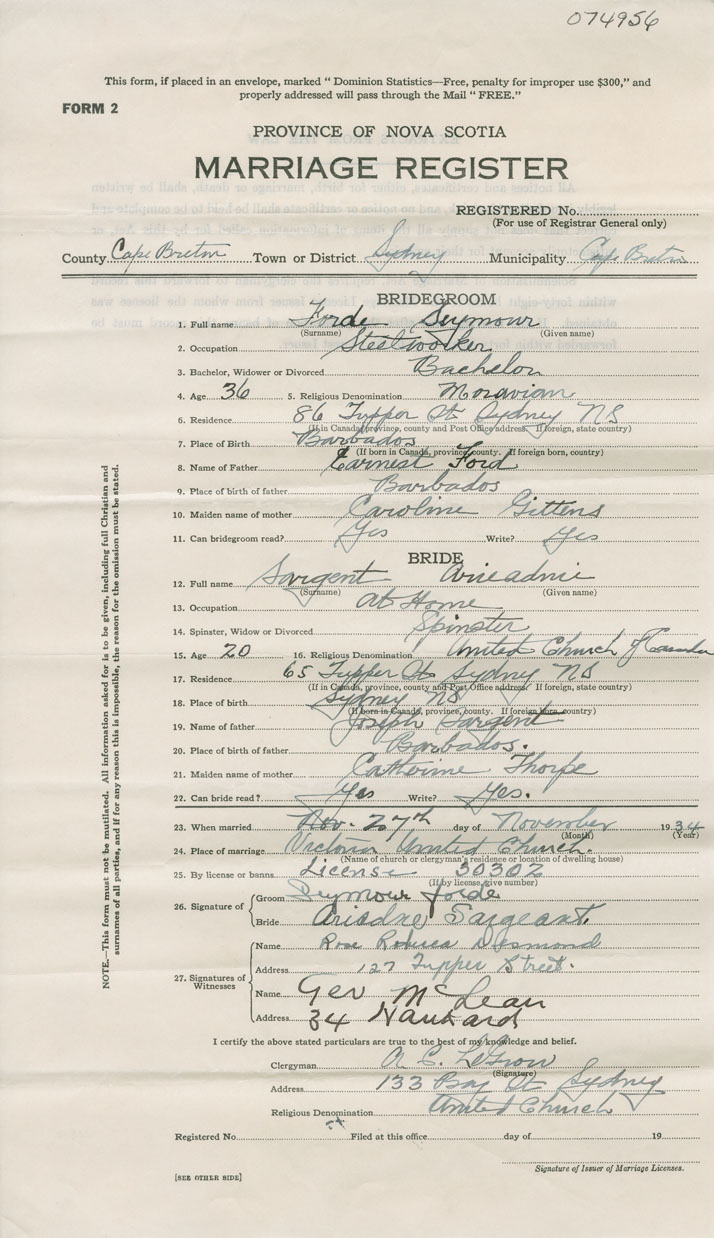 074956
This form, if placed in an envelope, marked " Dominion Statistics—Free, penalty for improper use $300," and
properly addressed will pass through the Mail " FREE."
FORM 2
PROVINCE OF NOVA SCOTIA
MARRIAGE REGISTER
REGISTERED No.
(For use of Registrar General only)
County Cape Breton Town or District Sydney Municipality Cape Breton
BRIDEGROOM
1. Full name Forde Seymour
(Surname) (Given name)
2. Occupation Steelworker
3. Bachelor, Widower or Divorced Bachelor
4. Age 36 5. Religious Denomination Moravian
6. Residence 86 Tupper St Sydney NS
(If in Canada, province, county and Post Office address. If foreign, state country)
7. Place of Birth Barbados
(If born in Canada, province, county. If foreign born, country)
8. Name of Father Earnest Ford
9. Place of birth of father Barbados
10. Maiden name of mother Caroline Gittens
11. Can bridegroom read? Yes Write? Yes
BRIDE
12. Full name Sargent Arieadnie
(Surname) (Given name)
13. Occupation At Home
14. Spinster, Widow or Divorced Spinster
15. Age 20 16. Religious Denomination United Church of Canada
17. Residence 65 Tupper St Sydney NS
(If in Canada, province, county and Post Office address. If foreign, state country)
18. Place of birth Sydney NS
(If born in Canada, province, county. If foreign born, country)
19. Name of father Joseph Sargent
20. Place of birth of father Barbados.
21. Maiden name of mother Catherine Thorpe
22. Can bride read? Yes Write? Yes.
23. When married Nov. 27th day of November 1934
(Month) (Year)
24. Place of marriage Victoria United Church.
(Name of church or clergyman's residence or location of dwelling house)
25. By license or banns License 30302
(If by license, give number)
26. Signature of Groom Seymour Forde
Bride Ariadne Sargeant.
27. Signatures of Witnesses
Name Rose Desmond
Address 127 Tupper Street.
Name Geo McLean
Address 34 Hankard
I certify the above stated particulars are true to the best of my knowledge and belief.
Clergyman A. C. LeGrow
(Signature)
Address 133 Bay St Sydney
Religious Denomination United Church
Registered No. Filed at this office day of 19
Signature of Issuer of Marriage Licenses.
[SEE OTHER SIDE]
NOTE.—This form must not be mutilated. All information asked for is to be given, including full Christian and
surnames of all parties, and if for any reason this is impossible, the reason for the omission must be stated.